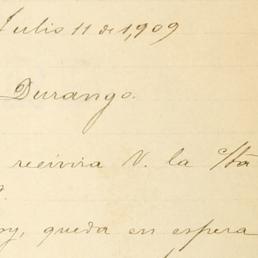 Julio 11 de 1,909
Durango.
recivira V. la c/ta
queda en espera